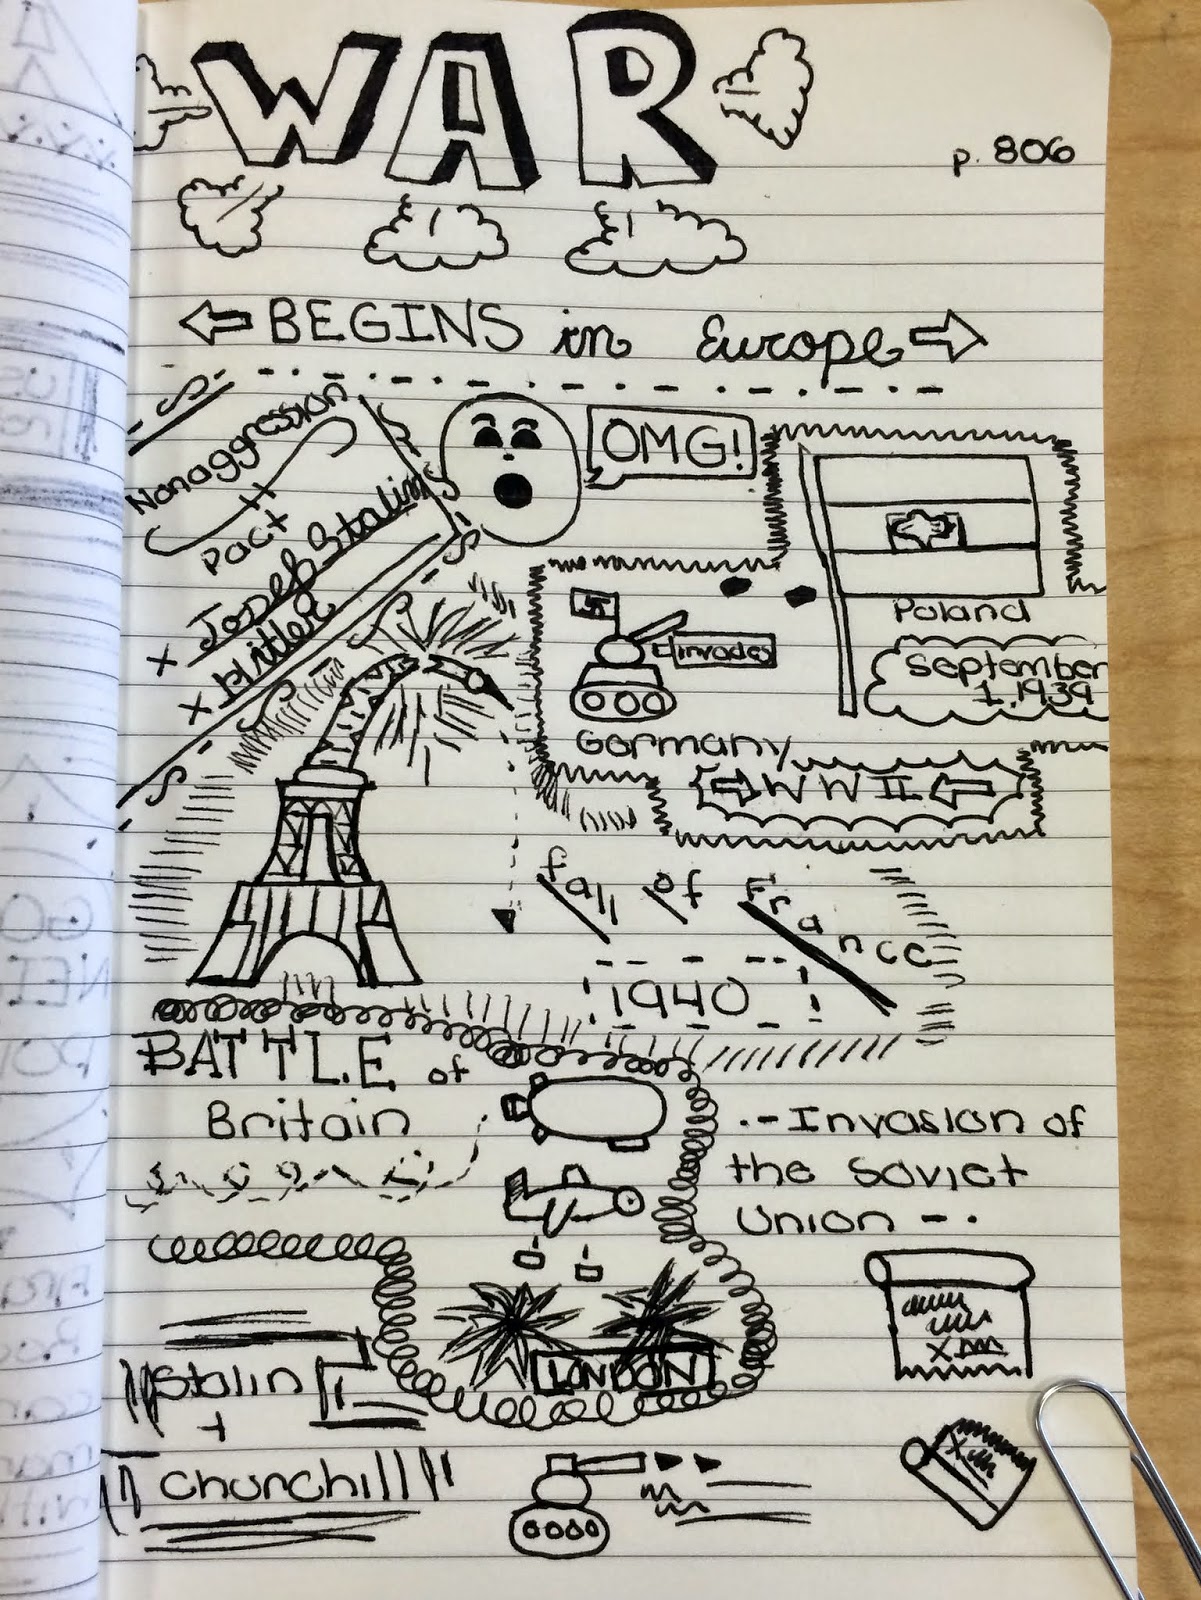 WAR
p. 806
BEGINS in Europe
Nonaggression
Pact
x Josef Stalin
x Hitler
OMG!
Poland
September
1, 1939
invades
Germany
WWII
fall of France
1940
BATTLE of
Britain
.-Invasion of
the Soviet
Union -.
LONDON
Stalin
+
Churchill